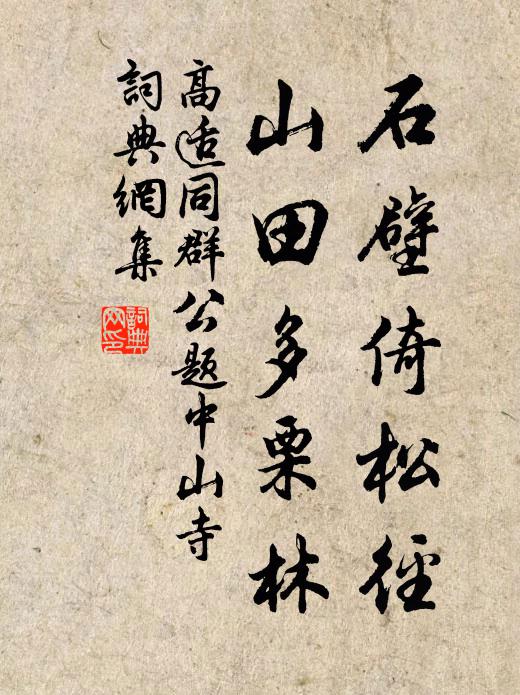 石壁倚松徑
山田多栗林
高适同群公題中山寺
詞典網集
詞典
网印